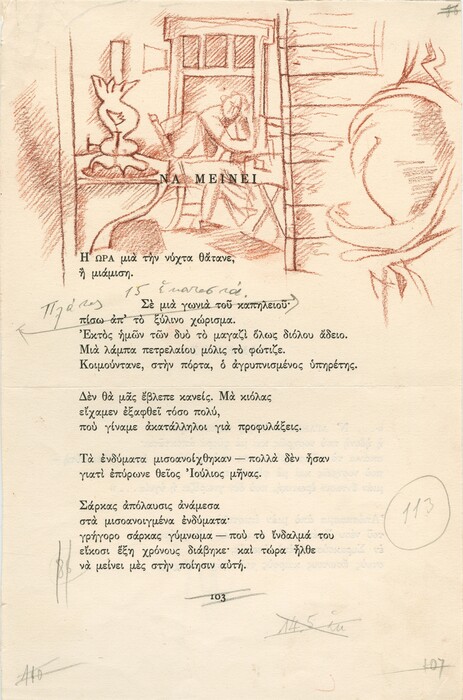 ΝΑ ΜΕΙΝΕΙ
Η ΩΡΑ μιὰ τὴν νύχτα θἄτανε,
ἢ μιάμιση.
15 ἑκατοστά.
Πλάτος
Σὲ μιὰ γωνιὰ τοῦ καπηλειοῦ·
πίσω ἀπ' τὸ ξύλινο χώρισμα.
Ἐκτὸς ἡμῶν τῶν δυὸ τὸ μαγαζὶ ὅλως διόλου ἄδειο.
Μιὰ λάμπα πετρελαίου μόλις τὸ φώτιζε.
Κοιμούντανε, στὴν πόρτα, ὁ ἀγρυπνισμένος ὑπηρέτης.
Δὲν θὰ μᾶς ἔβλεπε κανείς. Μὰ κιόλας
εἴχαμεν ἐξαφθεῖ τόσο πολύ,
ποὺ γίναμε ἀκατάλληλοι γιὰ προφυλάξεις.
Τὰ ἐνδύματα μισοανοίχθηκαν — πολλὰ δὲν ἦσαν
γιατὶ ἐπύρωνε θεῖος Ἰούλιος μῆνας.
Σάρκας ἀπόλαυσις ἀνάμεσα
στὰ μισοανοιγμένα ἐνδύματα·
γρήγορο σάρκας γύμνωμα — ποὺ τὸ ἴνδαλμά του
εἴκοσι ἕξη χρόνους διάβηκε· καὶ τώρα ἦλθε
νὰ μείνει μὲς στὴν ποίησιν αὐτή.
113
103
107